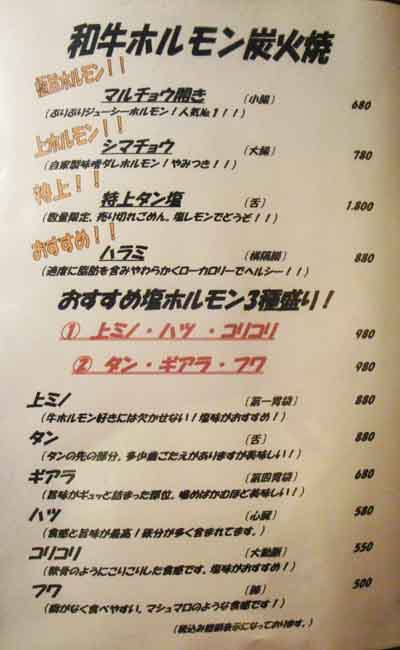 和牛ホルモン炭火焼
極旨ホルモン!!
マルチョウ開き (小腸) 680
(ぷりぷりジューシーホルモン!人気№1!!)
上ホルモン!!
シマチョウ (大腸) 780
(自家製味噌ダレホルモン!やみつき!!)
特上!!
特上タン塩 (舌) 1.800
(数量限定、売り切れごめん。塩レモンでどうぞ!!)
おすすめ!!
ハラミ (横隔膜) 880
(適度に脂肪を含みやわらかくローカロリーでヘルシー!!)
おすすめ塩ホルモン3種盛り!
① 上ミノ・ハツ・コリコリ 980
② タン・ギアラ・フワ 980
上ミノ (第一胃袋) 880
(牛ホルモン好きには欠かせない!塩味がおすすめ!)
タン (舌) 880
(タンの先の部分。多少歯ごたえがありますが美味しい!)
ギアラ (第四胃袋) 680
(旨味がギュッと詰まった部位。噛めばかむほど美味しい!)
ハツ (心臓) 580
(食感と旨味が最高!鉄分が多く含まれてます。)
コリコリ (大動脈) 550
(軟骨のようにこりこりした食感です。塩味がおすすめ!)
フワ (肺) 500
(癖がなく食べやすい、マシュマロのような食感です!)
(税込み総額表示になっております。)